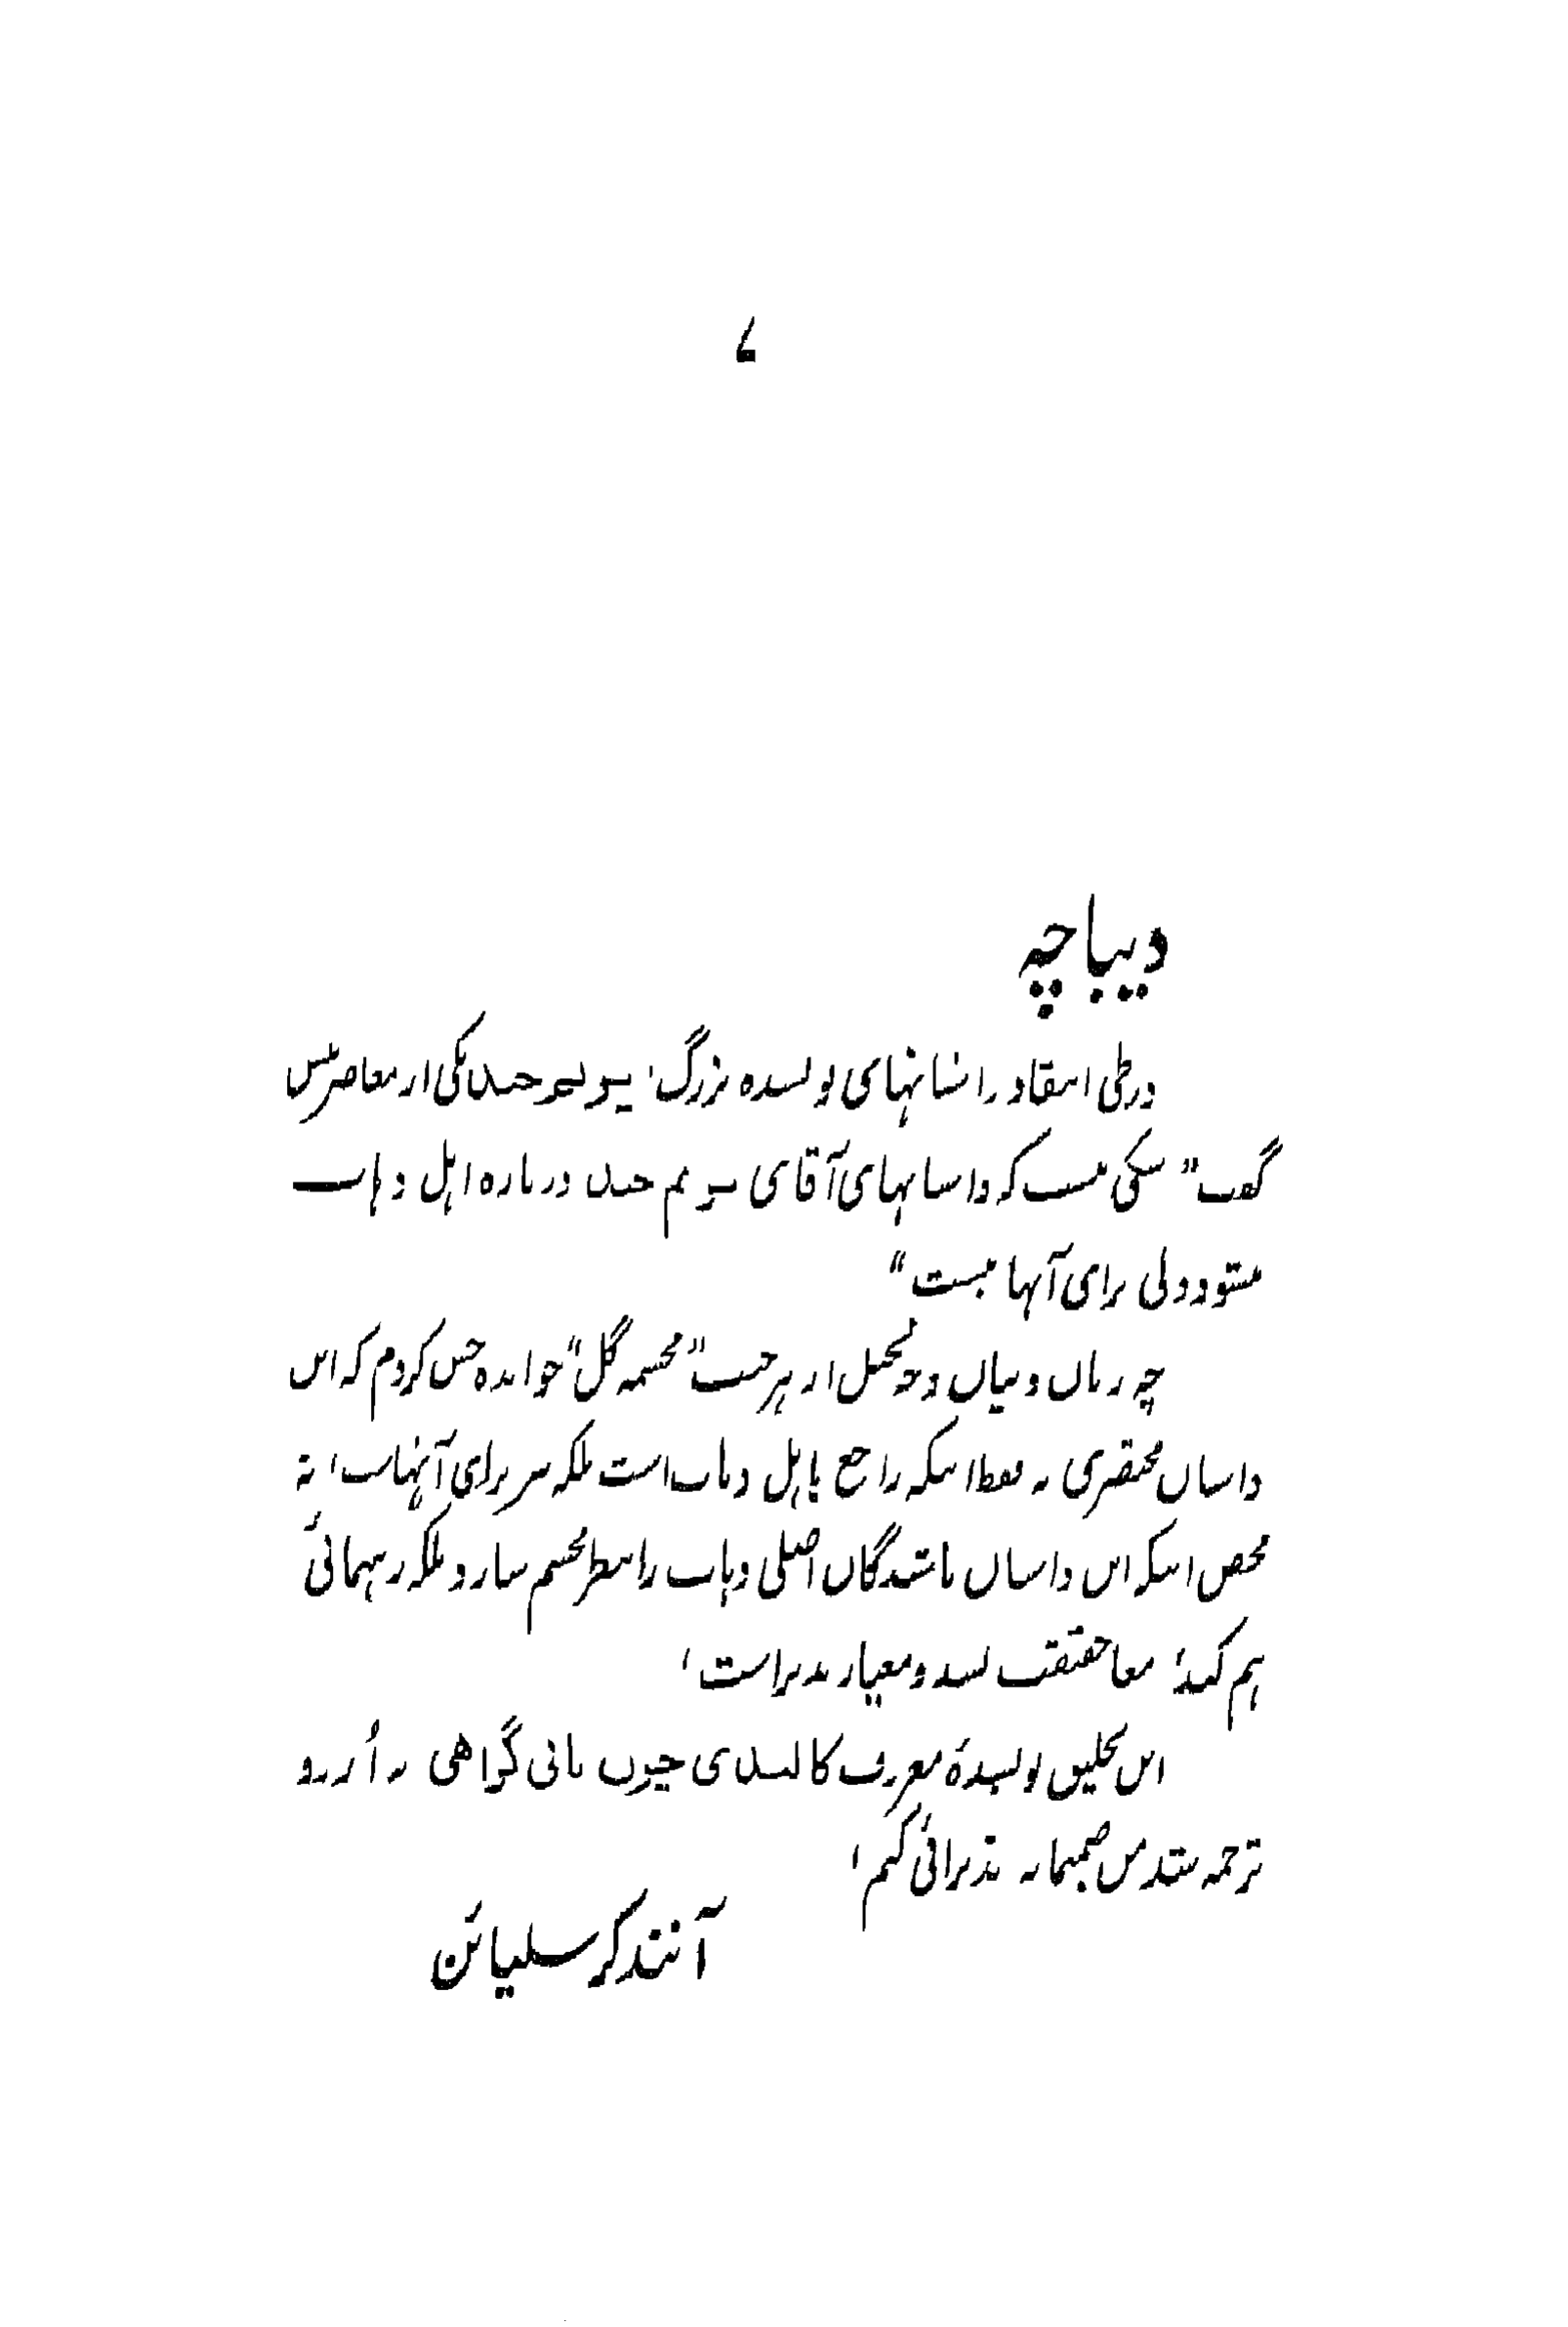 دیباچه
در طی انتقاد برافسانهای نویسنده بزرگ؛ پریم چند یکی از معاصرینش
گفت "شکی نیست که داستانهای آقای پریم چند درباره اهل دهات
میشود ولی برای آنها نیست"
چه زبان و بیان و تخیل از هر جهت "مجسمه گل" خوانده حس کردم که این
داستان مختصری نه فقط اینکه راجع باهل دهات است بلکه نیز برای آنهاست؛ نه
محض اینکه این داستان باشندگان اصلی دهات را منظر مجسم سازد و بلکه رهنمائی
هم کند؛ معا حقیقت پسند و معیار پذیر است؛
این تخلیق نویسندهٔ معروف کالندی چرن پانی گراهی به اُردو
ترجمه تقدیس صمیمانه پذیرائی کنم؛
آنند کرسلیائن